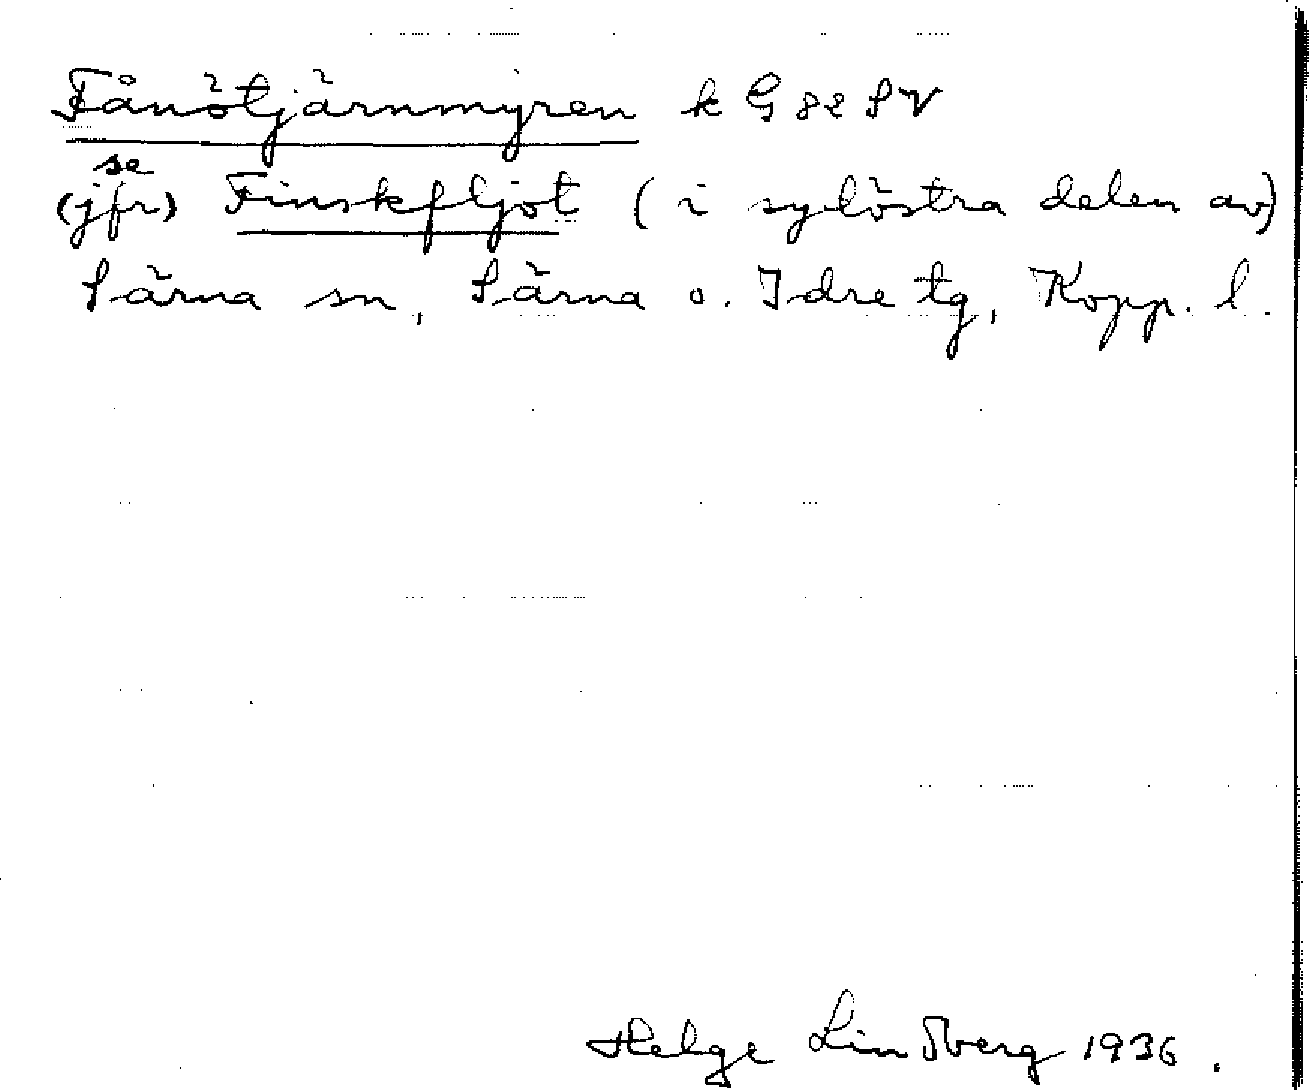 Fånötjärnmyren k G 82 SV
se
(jfr) Finskfljot (i sydöstra delen av)
Särna sn, Särna o. Idre tg, Kopp. l.
Helge Lindberg 1936.